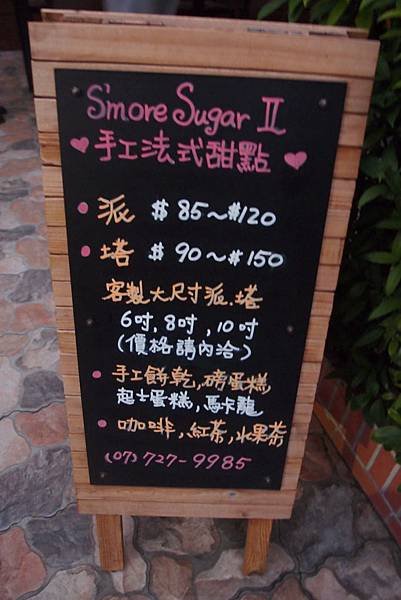 S'more Sugar II
手工法式甜點
派 $85~$120
塔 $90~$150
客製大尺寸派.塔
6吋,8吋,10吋
(價格請內洽)
手工餅乾,磅蛋糕
起士蛋糕,馬卡龍
咖啡,紅茶,水果茶
(07)727-9985